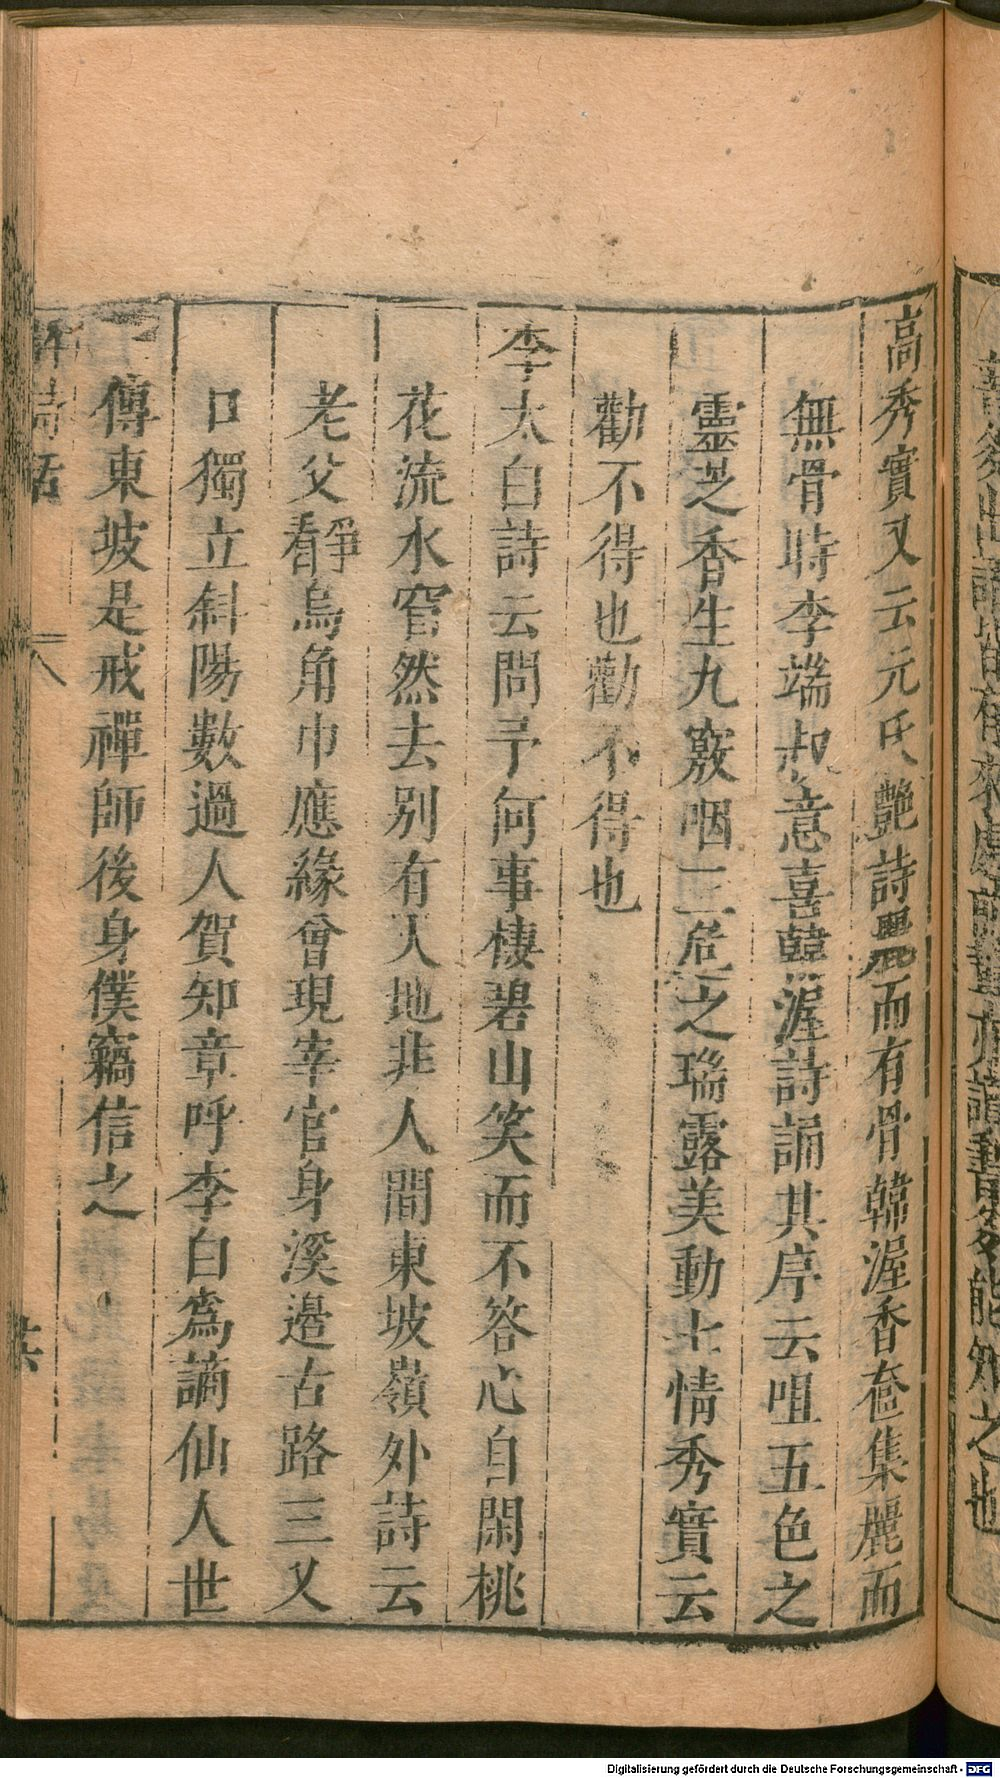 高秀實又云元氏艷詩麗而有骨韓渥香奩集麗而
無骨時李端叔意喜韓渥詩誦其序云咀五色之
靈芝香生九竅咽三危之瑞露美動七情秀實云
勸不得也勸不得也
李太白詩云問予何事棲碧山笑而不答心自閑桃
花流水窅然去别有天地非人間東坡嶺外詩云
老父靜看烏角巾應緣曾現宰官身溪邊古路三叉
口獨立斜陽數過人賀知章呼李白爲謫仙人世
傳東坡是戒禪師後身僕竊信之
詩話
八
Digitalisierung gefördert durch die Deutsche Forschungsgemeinschaft - DFG